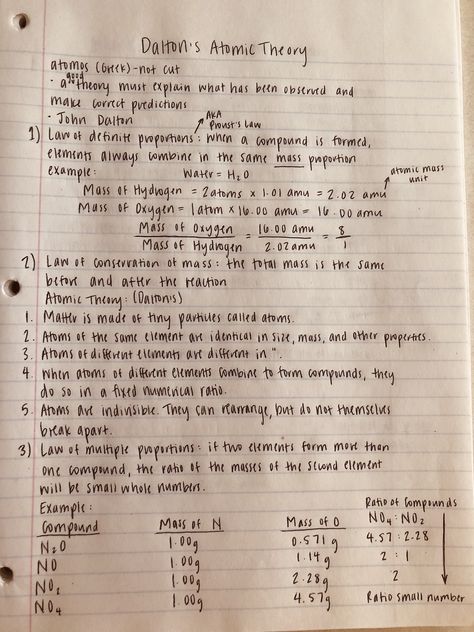 Dalton's Atomic Theory
atomos (Greek) - not cut
· a good theory must explain what has been observed and
make correct predictions
· John Dalton
AKA
Proust's Law
1) Law of definite proportions: when a compound is formed,
elements always combine in the same mass proportion
example: Water = H₂O
atomic mass
unit
Mass of Hydrogen = 2 atoms × 1.01 amu = 2.02 amu
Mass of Oxygen = 1 atom × 16.00 amu = 16.00 amu
Mass of Oxygen = 16.00 amu = 8
Mass of Hydrogen 2.02 amu 1
2) Law of conservation of mass: the total mass is the same
before and after the reaction
Atomic Theory: (Dalton's)
1. Matter is made of tiny particles called atoms.
2. Atoms of the same element are identical in size, mass, and other properties.
3. Atoms of different elements are different in ".
4. When atoms of different elements combine to form compounds, they
do so in a fixed numerical ratio.
5. Atoms are indivisible. They can rearrange, but do not themselves
break apart.
3) Law of multiple proportions: if two elements form more than
one compound, the ratio of the masses of the second element
will be small whole numbers.
Example: Ratio of Compounds
Compound Mass of N Mass of O NO₄ : NO₂
N₂O 1.00g 0.571g 4.57 : 2.28
NO 1.00g 1.14g 2 : 1
NO₂ 1.00g 2.28g 2
NO₄ 1.00g 4.57g Ratio small number